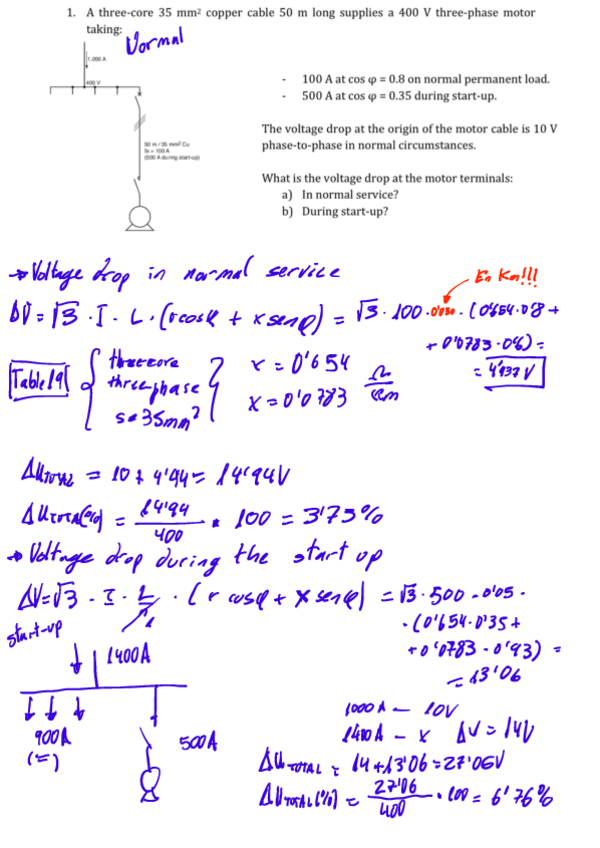 1. A three-core 35 mm² copper cable 50 m long supplies a 400 V three-phase motor
taking:
Normal
1,000 A
400 V
50 m / 35 mm² Cu
IB = 100 A
(500 A during start-up)
- 100 A at cos φ = 0.8 on normal permanent load.
- 500 A at cos φ = 0.35 during start-up.
The voltage drop at the origin of the motor cable is 10 V
phase-to-phase in normal circumstances.
What is the voltage drop at the motor terminals:
a) In normal service?
b) During start-up?
→ Voltage drop in normal service
En Km!!!
ΔV = √3 · I · L · (r cosφ + x senφ) = √3 · 100 · 0'050 · (0'654 · 0'8 +
+ 0'0783 · 0'6) =
= 4'937 V
Table 19
three core
three phase
s = 35mm²
r = 0'654
x = 0'0783
Ω/km
ΔU TOTAL = 10 + 4'94 = 14'94V
ΔU TOTAL (%) = 14'94/400 · 100 = 3'73%
→ Voltage drop during the start up
ΔV = √3 · I · L · (r cosφ + x senφ) = √3 · 500 · 0'05 ·
· (0'654 · 0'35 +
+ 0'0783 · 0'93) =
= 13'06
start-up
1400A
900A
(=)
500A
1000 A — 10V
1400 A — x ΔV = 14V
ΔU TOTAL = 14 + 13'06 = 27'06V
ΔU TOTAL (%) = 27'06/400 · 100 = 6'76%